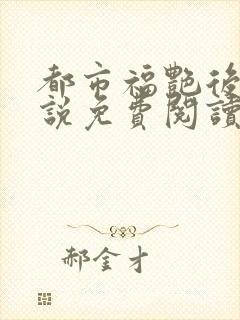 都市福艷後
說免費閱讀
郝金才